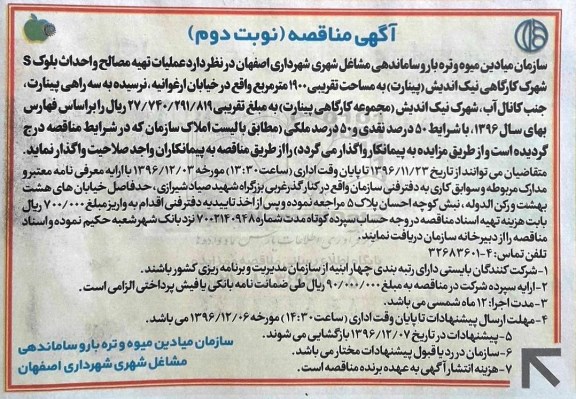 آگهی مناقصه (نوبت دوم)
سازمان میادین میوه و تره بار و ساماندهی مشاغل شهری شهرداری اصفهان در نظر دارد عملیات تهیه مصالح و احداث بلوک S
شهرک کارگاهی نیک اندیش (پینارت) به مساحت تقریبی ۱۹۰۰ مترمربع واقع در خیابان ارغوانیه، نرسیده به سه راهی پینارت،
جنب کانال آب، شهرک نیک اندیش (مجموعه کارگاهی پینارت) به مبلغ تقریبی ۲۷/۷۴۰/۲۹۱/۸۱۹ ریال را براساس فهارس
بهای سال ۱۳۹۶، با شرایط ۵۰ درصد نقدی و ۵۰ درصد ملکی (مطابق با لیست املاک سازمان که در شرایط مناقصه درج
گردیده است و از طریق مزایده به پیمانکار واگذار می گردد) را از طریق مناقصه به پیمانکاران واجد صلاحیت واگذار نماید.
متقاضیان می توانند از تاریخ ۱۳۹۶/۱۱/۲۳ تا پایان وقت اداری (ساعت ۱۳:۳۰) مورخه ۱۳۹۶/۱۲/۰۳ با ارایه معرفی نامه معتبر و
مدارک مربوطه و سوابق کاری به دفتر فنی سازمان واقع در کنار گذر غربی بزرگراه شهید صیاد شیرازی، حدفاصل خیابان های هشت
بهشت و رکن الدوله، نبش کوچه احسان پلاک ۵ مراجعه نموده و پس از اخذ تاییدیه دفتر فنی اقدام به واریز مبلغ ۷۰۰/۰۰۰ ریال
بابت هزینه تهیه اسناد مناقصه در وجه حساب سپرده کوتاه مدت شماره ۷۰۰۲۱۴۰۹۴۸ نزد بانک شهر شعبه حکیم نموده و اسناد
مناقصه را از دبیرخانه سازمان دریافت نمایند.
تلفن تماس: ۴-۳۲۶۸۳۶۰۱
۱-شرکت کنندگان بایستی دارای رتبه بندی چهار ابنیه از سازمان مدیریت و برنامه ریزی کشور باشند.
۲-ارایه سپرده شرکت در مناقصه به مبلغ ۹۰/۰۰۰/۰۰۰ ریال طی ضمانت نامه بانکی یا فیش پرداختی الزامی است.
۳-مدت اجرا: ۱۲ ماه شمسی می باشد.
۴-مهلت ارسال پیشنهادات تا پایان وقت اداری (ساعت ۱۴:۳۰) مورخه ۱۳۹۶/۱۲/۰۶ می باشد.
۵-پیشنهادات در تاریخ ۱۳۹۶/۱۲/۰۷ بازگشایی می شوند.
۶-سازمان در رد یا قبول پیشنهادات مختار می باشد.
۷-هزینه انتشار آگهی به عهده برنده مناقصه است.
سازمان میادین میوه و تره بار و ساماندهی
مشاغل شهری شهرداری اصفهان